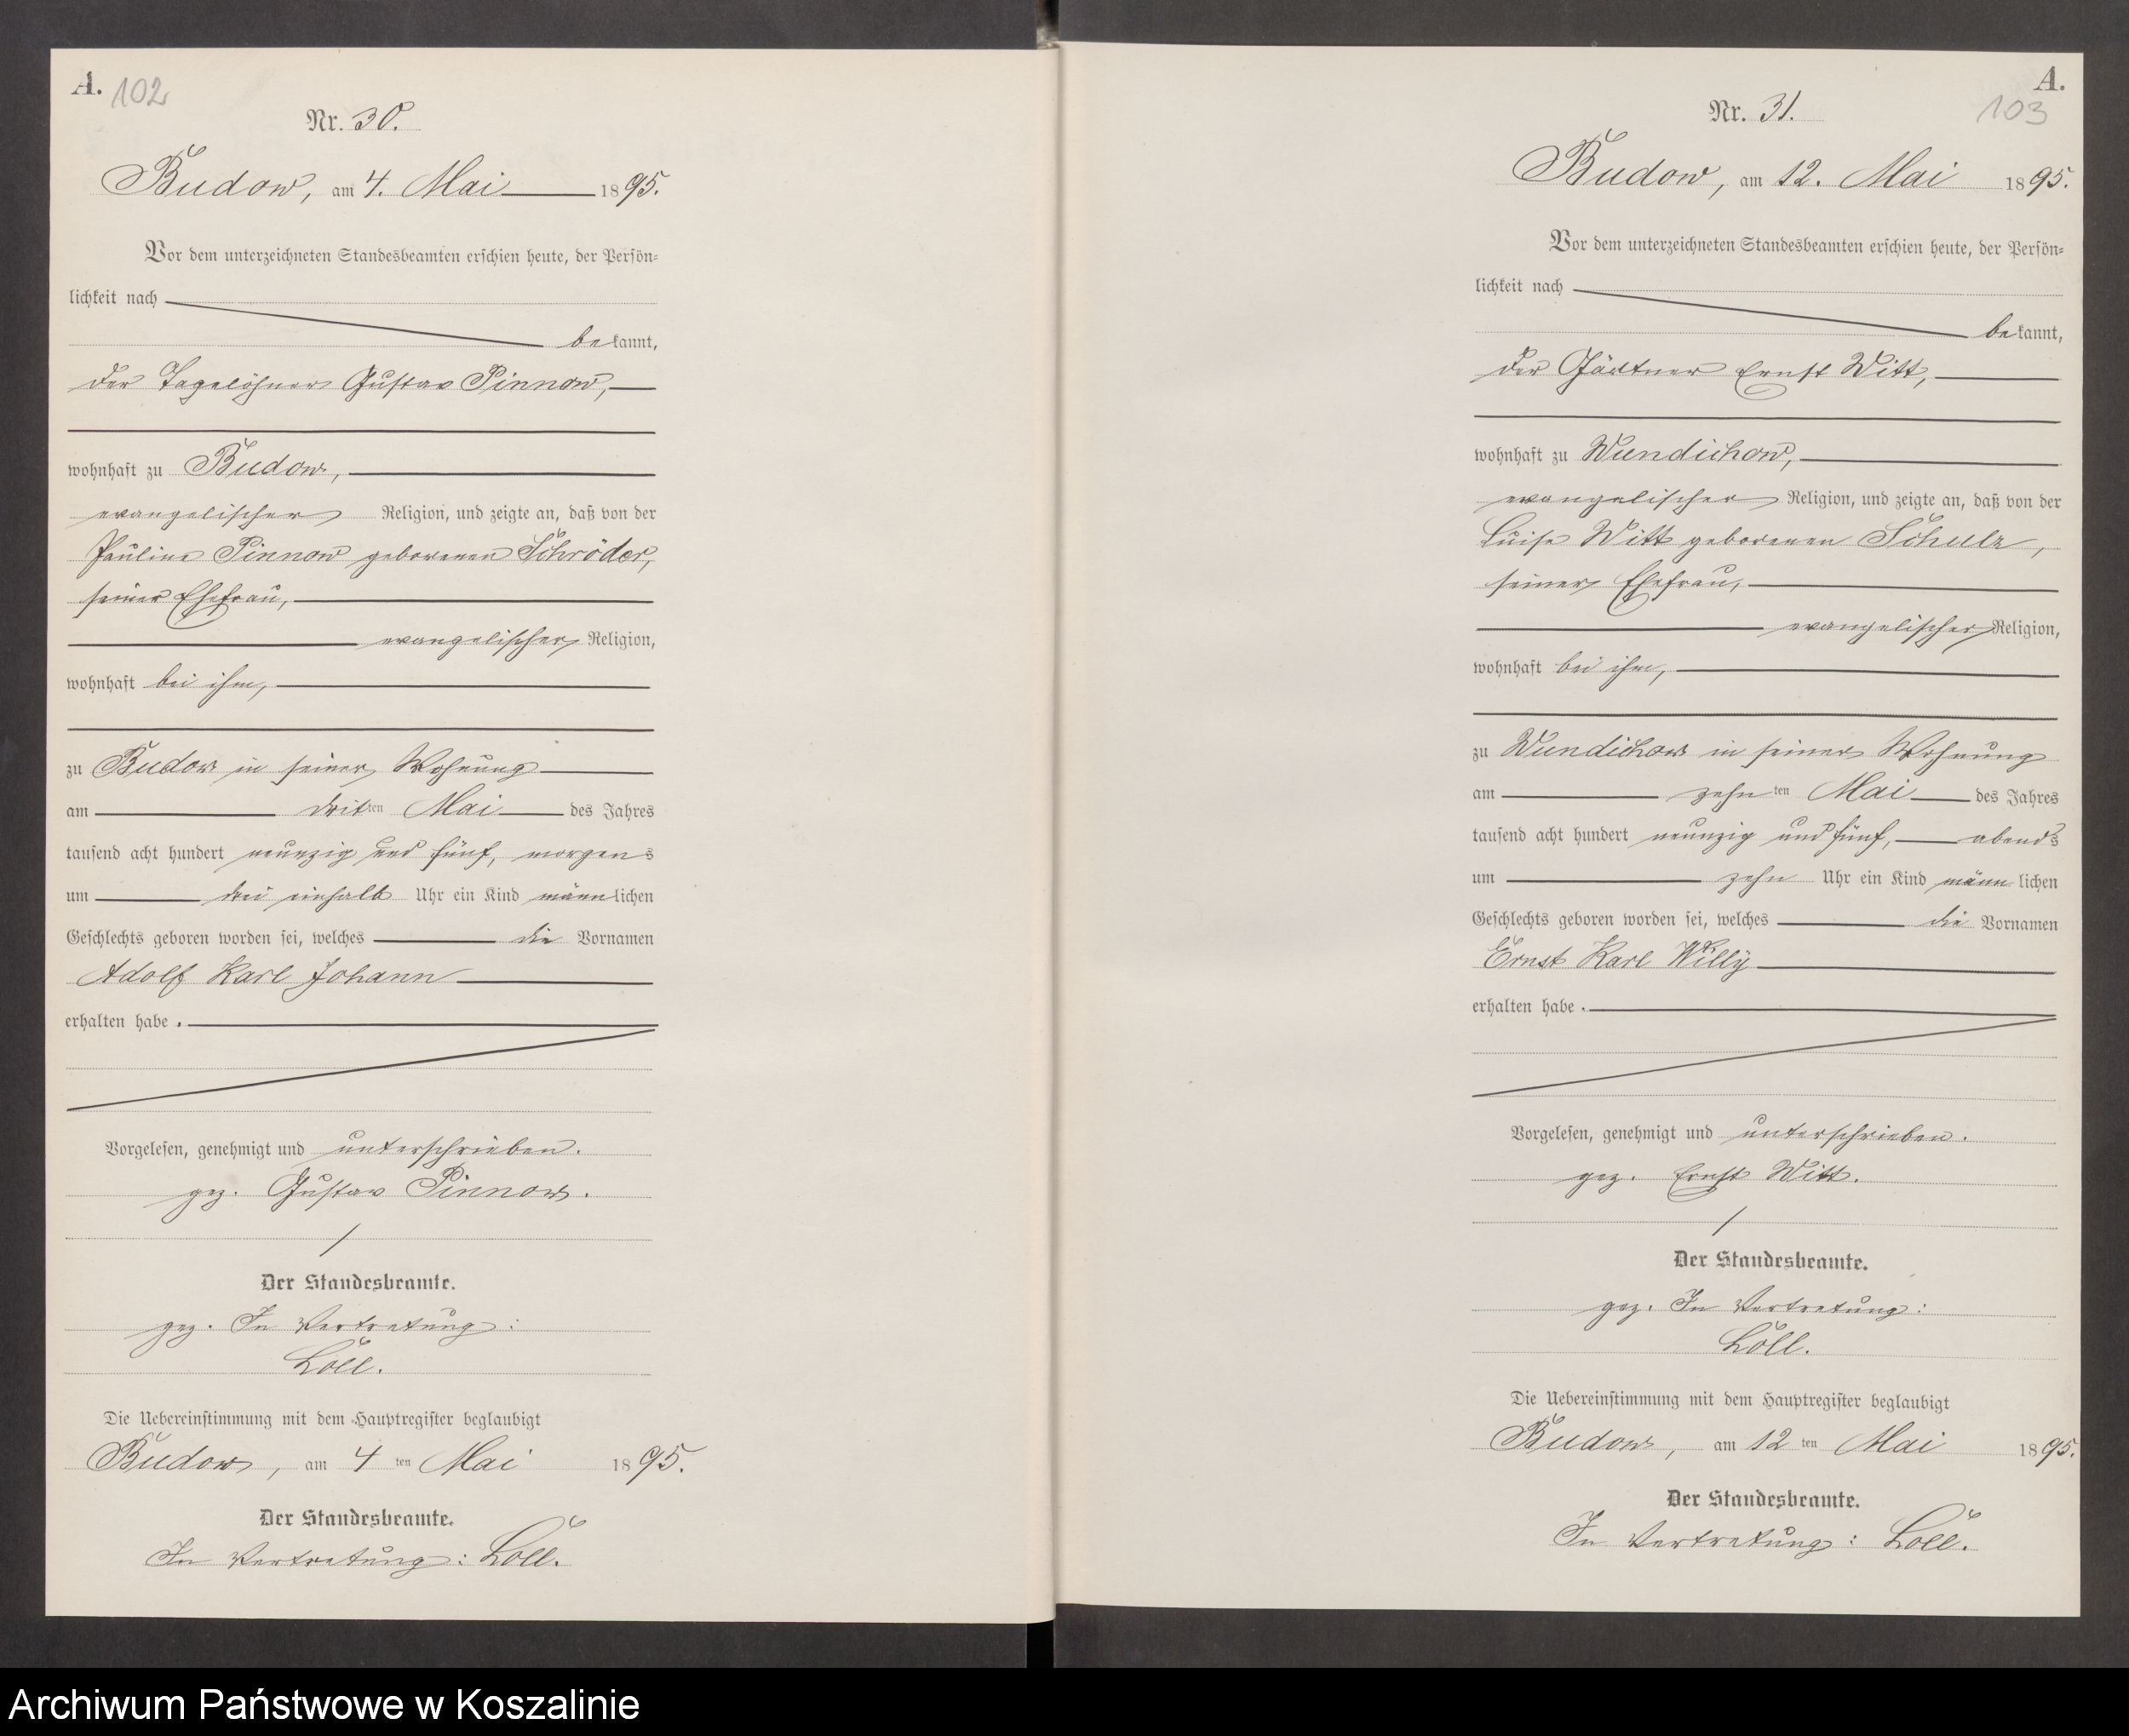 A. 102
Nr. 30.
Budow, am 4. Mai 1895.
Vor dem unterzeichneten Standesbeamten erschien heute, der Persön-
lichkeit nach
bekannt,
der Tagelöhner Gustav Pinnow,
wohnhaft zu Budow,
evangelischer Religion, und zeigte an, daß von der
Pauline Pinnow geborenen Schröder,
seiner Ehefrau,
evangelischer Religion,
wohnhaft bei ihm,
zu Budow in seiner Wohnung
am dritten Mai des Jahres
tausend acht hundert neunzig und fünf, morgens
um drei einhalb Uhr ein Kind männlichen
Geschlechts geboren worden sei, welches die Vornamen
Adolf Karl Johann
erhalten habe.
Vorgelesen, genehmigt und unterschrieben.
gez. Gustav Pinnow.
Der Standesbeamte.
gez. In Vertretung:
Löll.
Die Uebereinstimmung mit dem Hauptregister beglaubigt
Budow, am 4 ten Mai 1895.
Der Standesbeamte.
In Vertretung: Löll.
A.
103
Nr. 31.
Budow, am 12. Mai 1895.
Vor dem unterzeichneten Standesbeamten erschien heute, der Persön-
lichkeit nach
bekannt,
der Gärtner Ernst Witt,
wohnhaft zu Wundichow,
evangelischer Religion, und zeigte an, daß von der
Luise Witt geborenen Schulz,
seiner Ehefrau,
evangelischer Religion,
wohnhaft bei ihm,
zu Wundichow in seiner Wohnung
am zehnten Mai des Jahres
tausend acht hundert neunzig und fünf, abends
um zehn Uhr ein Kind männlichen
Geschlechts geboren worden sei, welches die Vornamen
Ernst Karl Willÿ
erhalten habe.
Vorgelesen, genehmigt und unterschrieben.
gez. Ernst Witt.
Der Standesbeamte.
gez. In Vertretung:
Löll.
Die Uebereinstimmung mit dem Hauptregister beglaubigt
Budow, am 12 ten Mai 1895.
Der Standesbeamte.
In Vertretung: Löll.
Archiwum Państwowe w Koszalinie